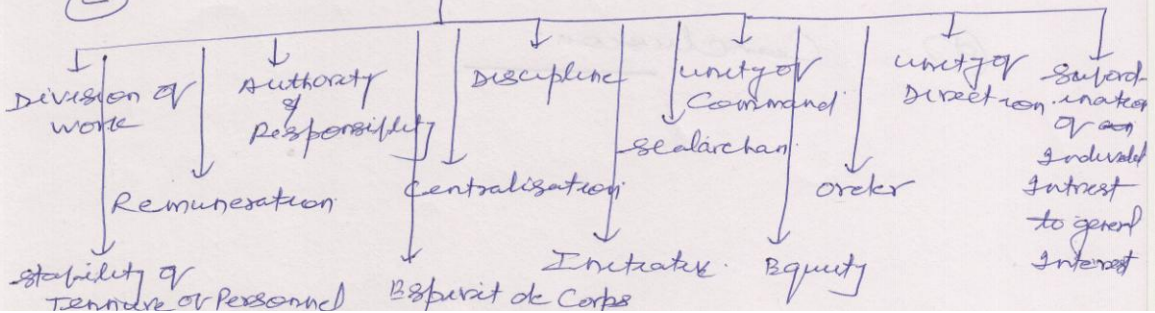 Division of
work
Authority
&
Responsiblity
Discipline
unity of
Command
unity of
Direction
Subord-
ination
of
Individul
Intrest
to generl
Interest
Remuneration
Centralisation
Scalarchan
order
Stability of
Tennure of Personnel
Espirit de Corps
Initiative
Equity